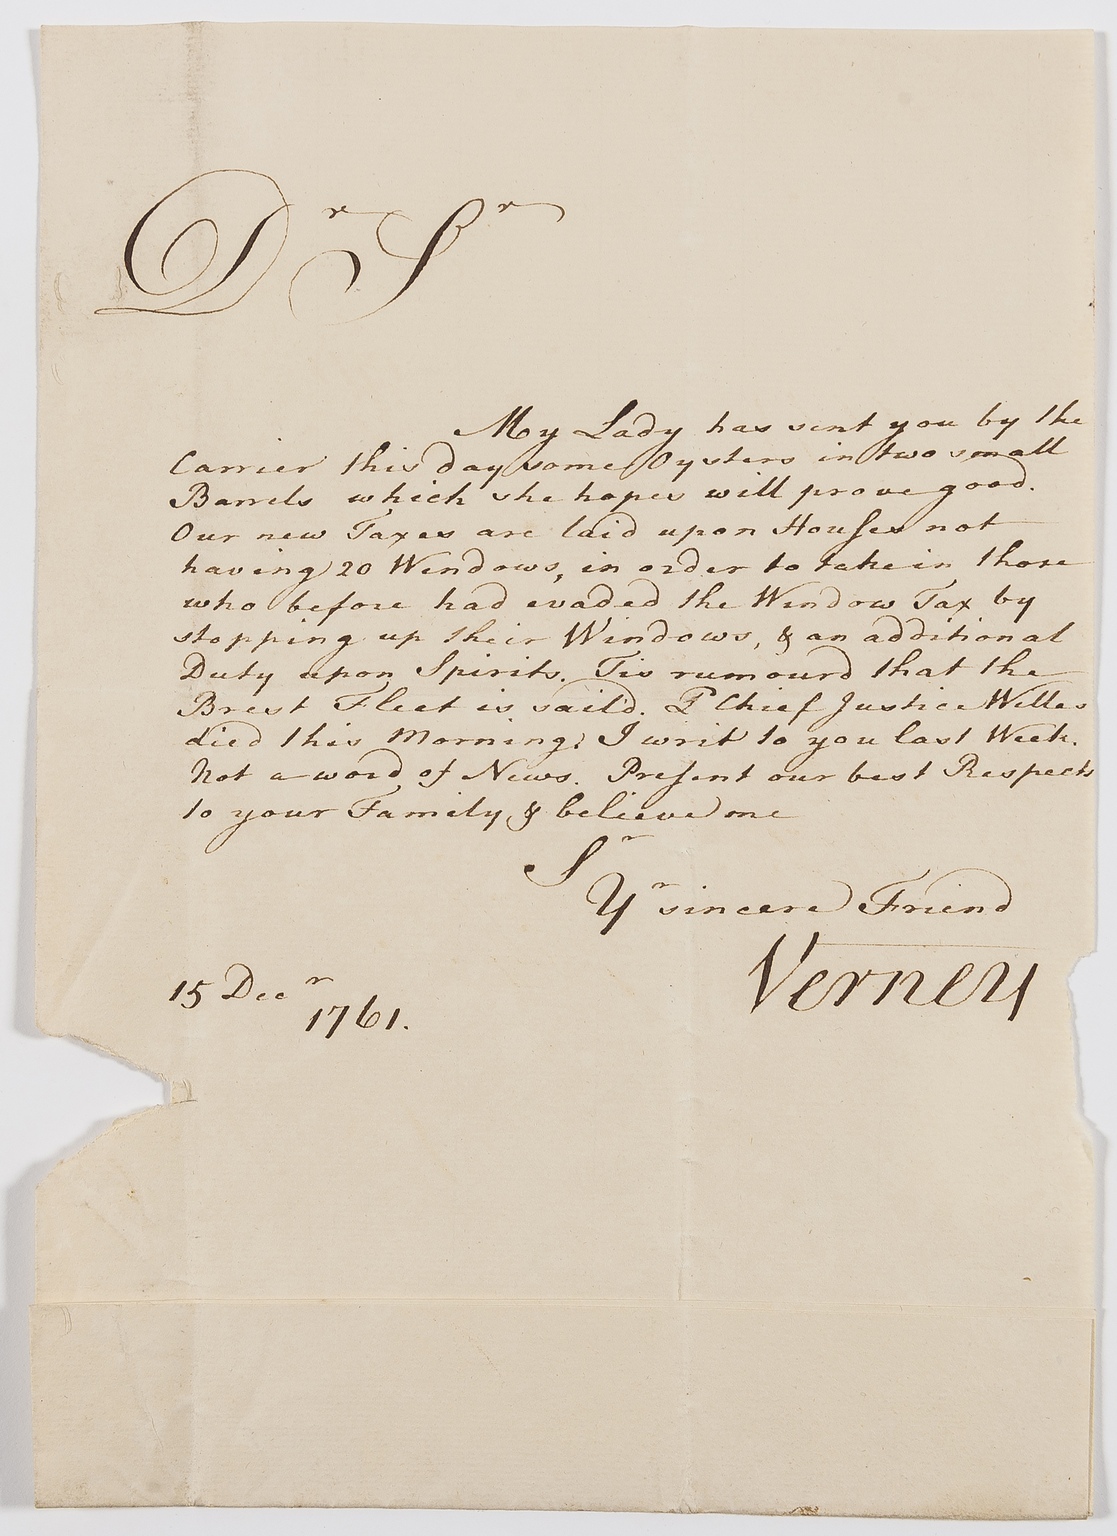 Dr Sr
My Lady has sent you by the
Carrier this day some Oysters in two small
Barrels which she hopes will prove good.
Our new Taxes are laid upon Houses not
having 20 Windows, in order to take in those
who before had evaded the Window Tax by
stopping up their Windows, & an additional
Duty upon Spirits. Tis rumourd that the
Brest Fleet is sail'd. Ld Chief Justice Willes
died this Morning. I writ to you last Week.
Not a word of News. Present our best Respects
to your Family & believe me
Sr
Yr sincere Friend
Verney
15 Decr
1761.